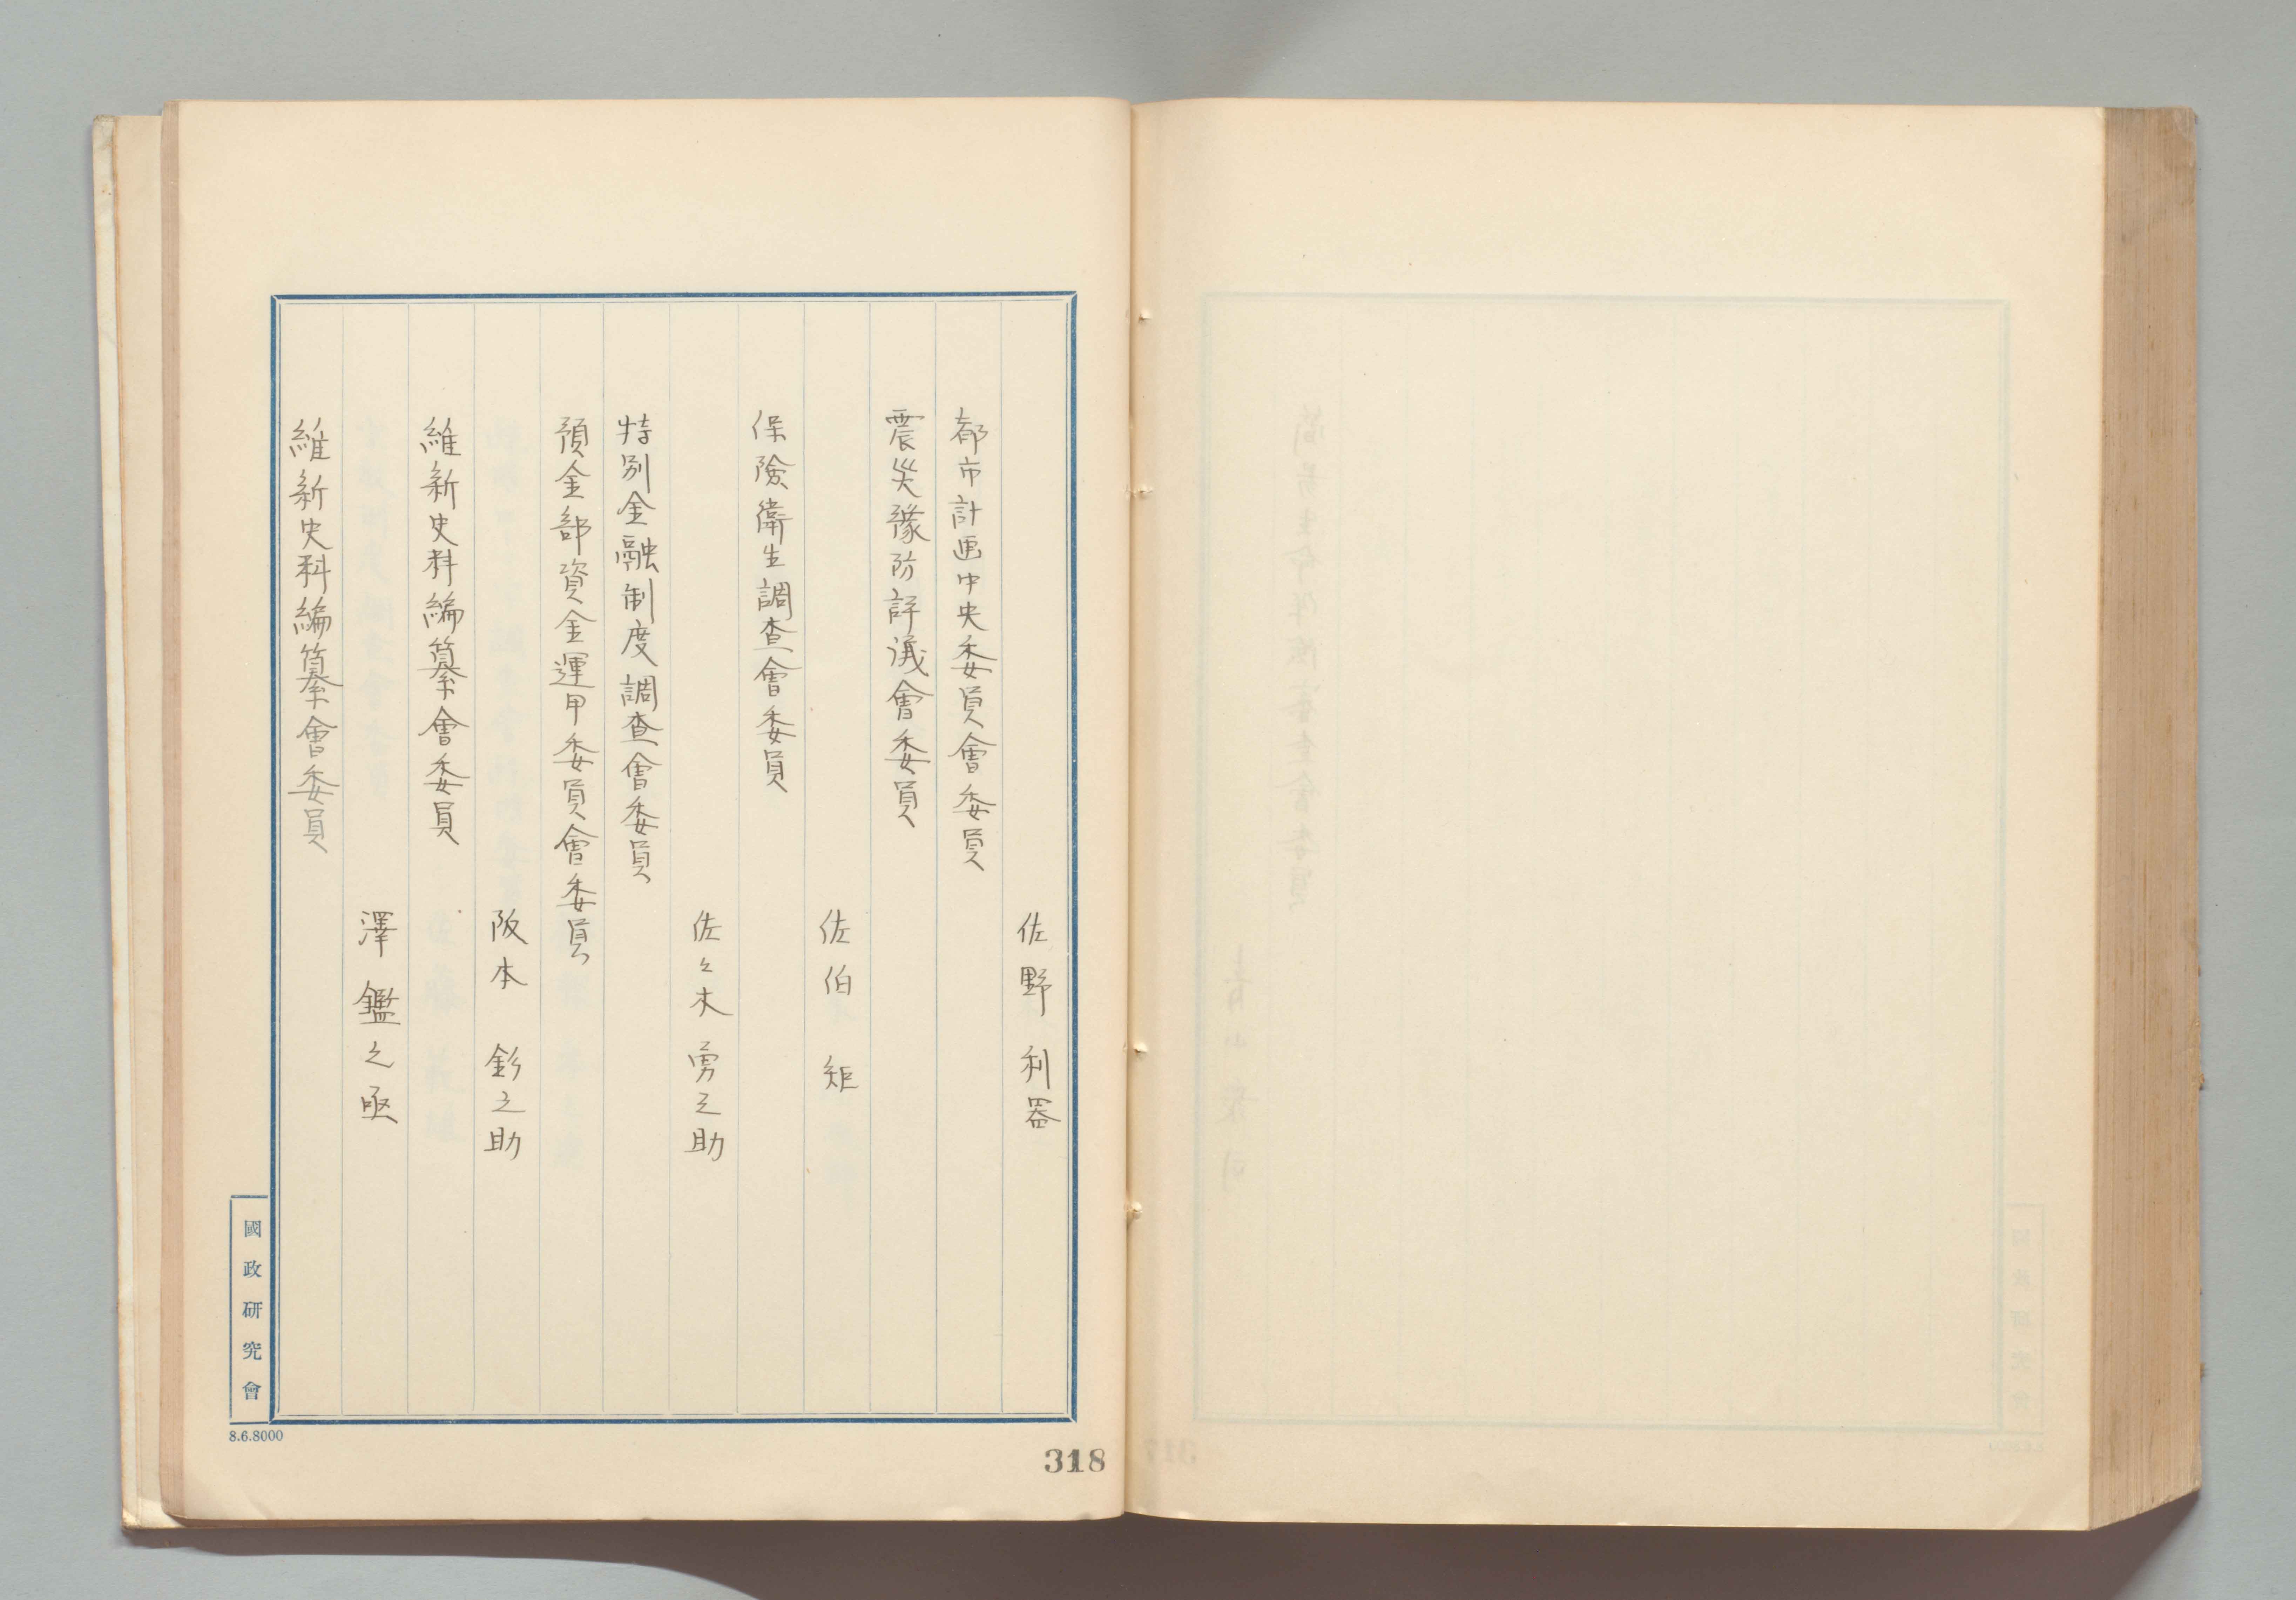 佐野利器
都市計画中央委員會委員
震災豫防評議會委員
佐伯矩
保險衛生調査會委員
佐々木勇之助
特別金融制度調査會委員
預金部資金運用委員會委員
阪本釤之助
維新史料編纂會委員
澤鑑之丞
維新史料編纂會委員
國政研究會
8.6.8000
318